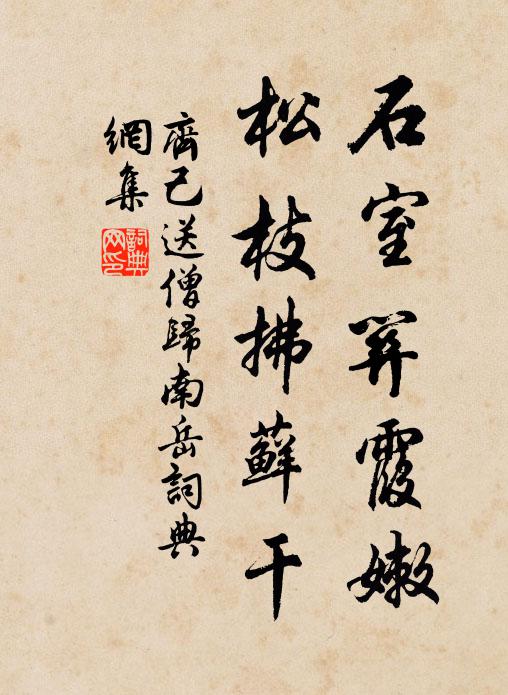 石室关霞嫩
松枝拂蘚干
齊己送僧歸南岳詞典
網集
詞典
网印